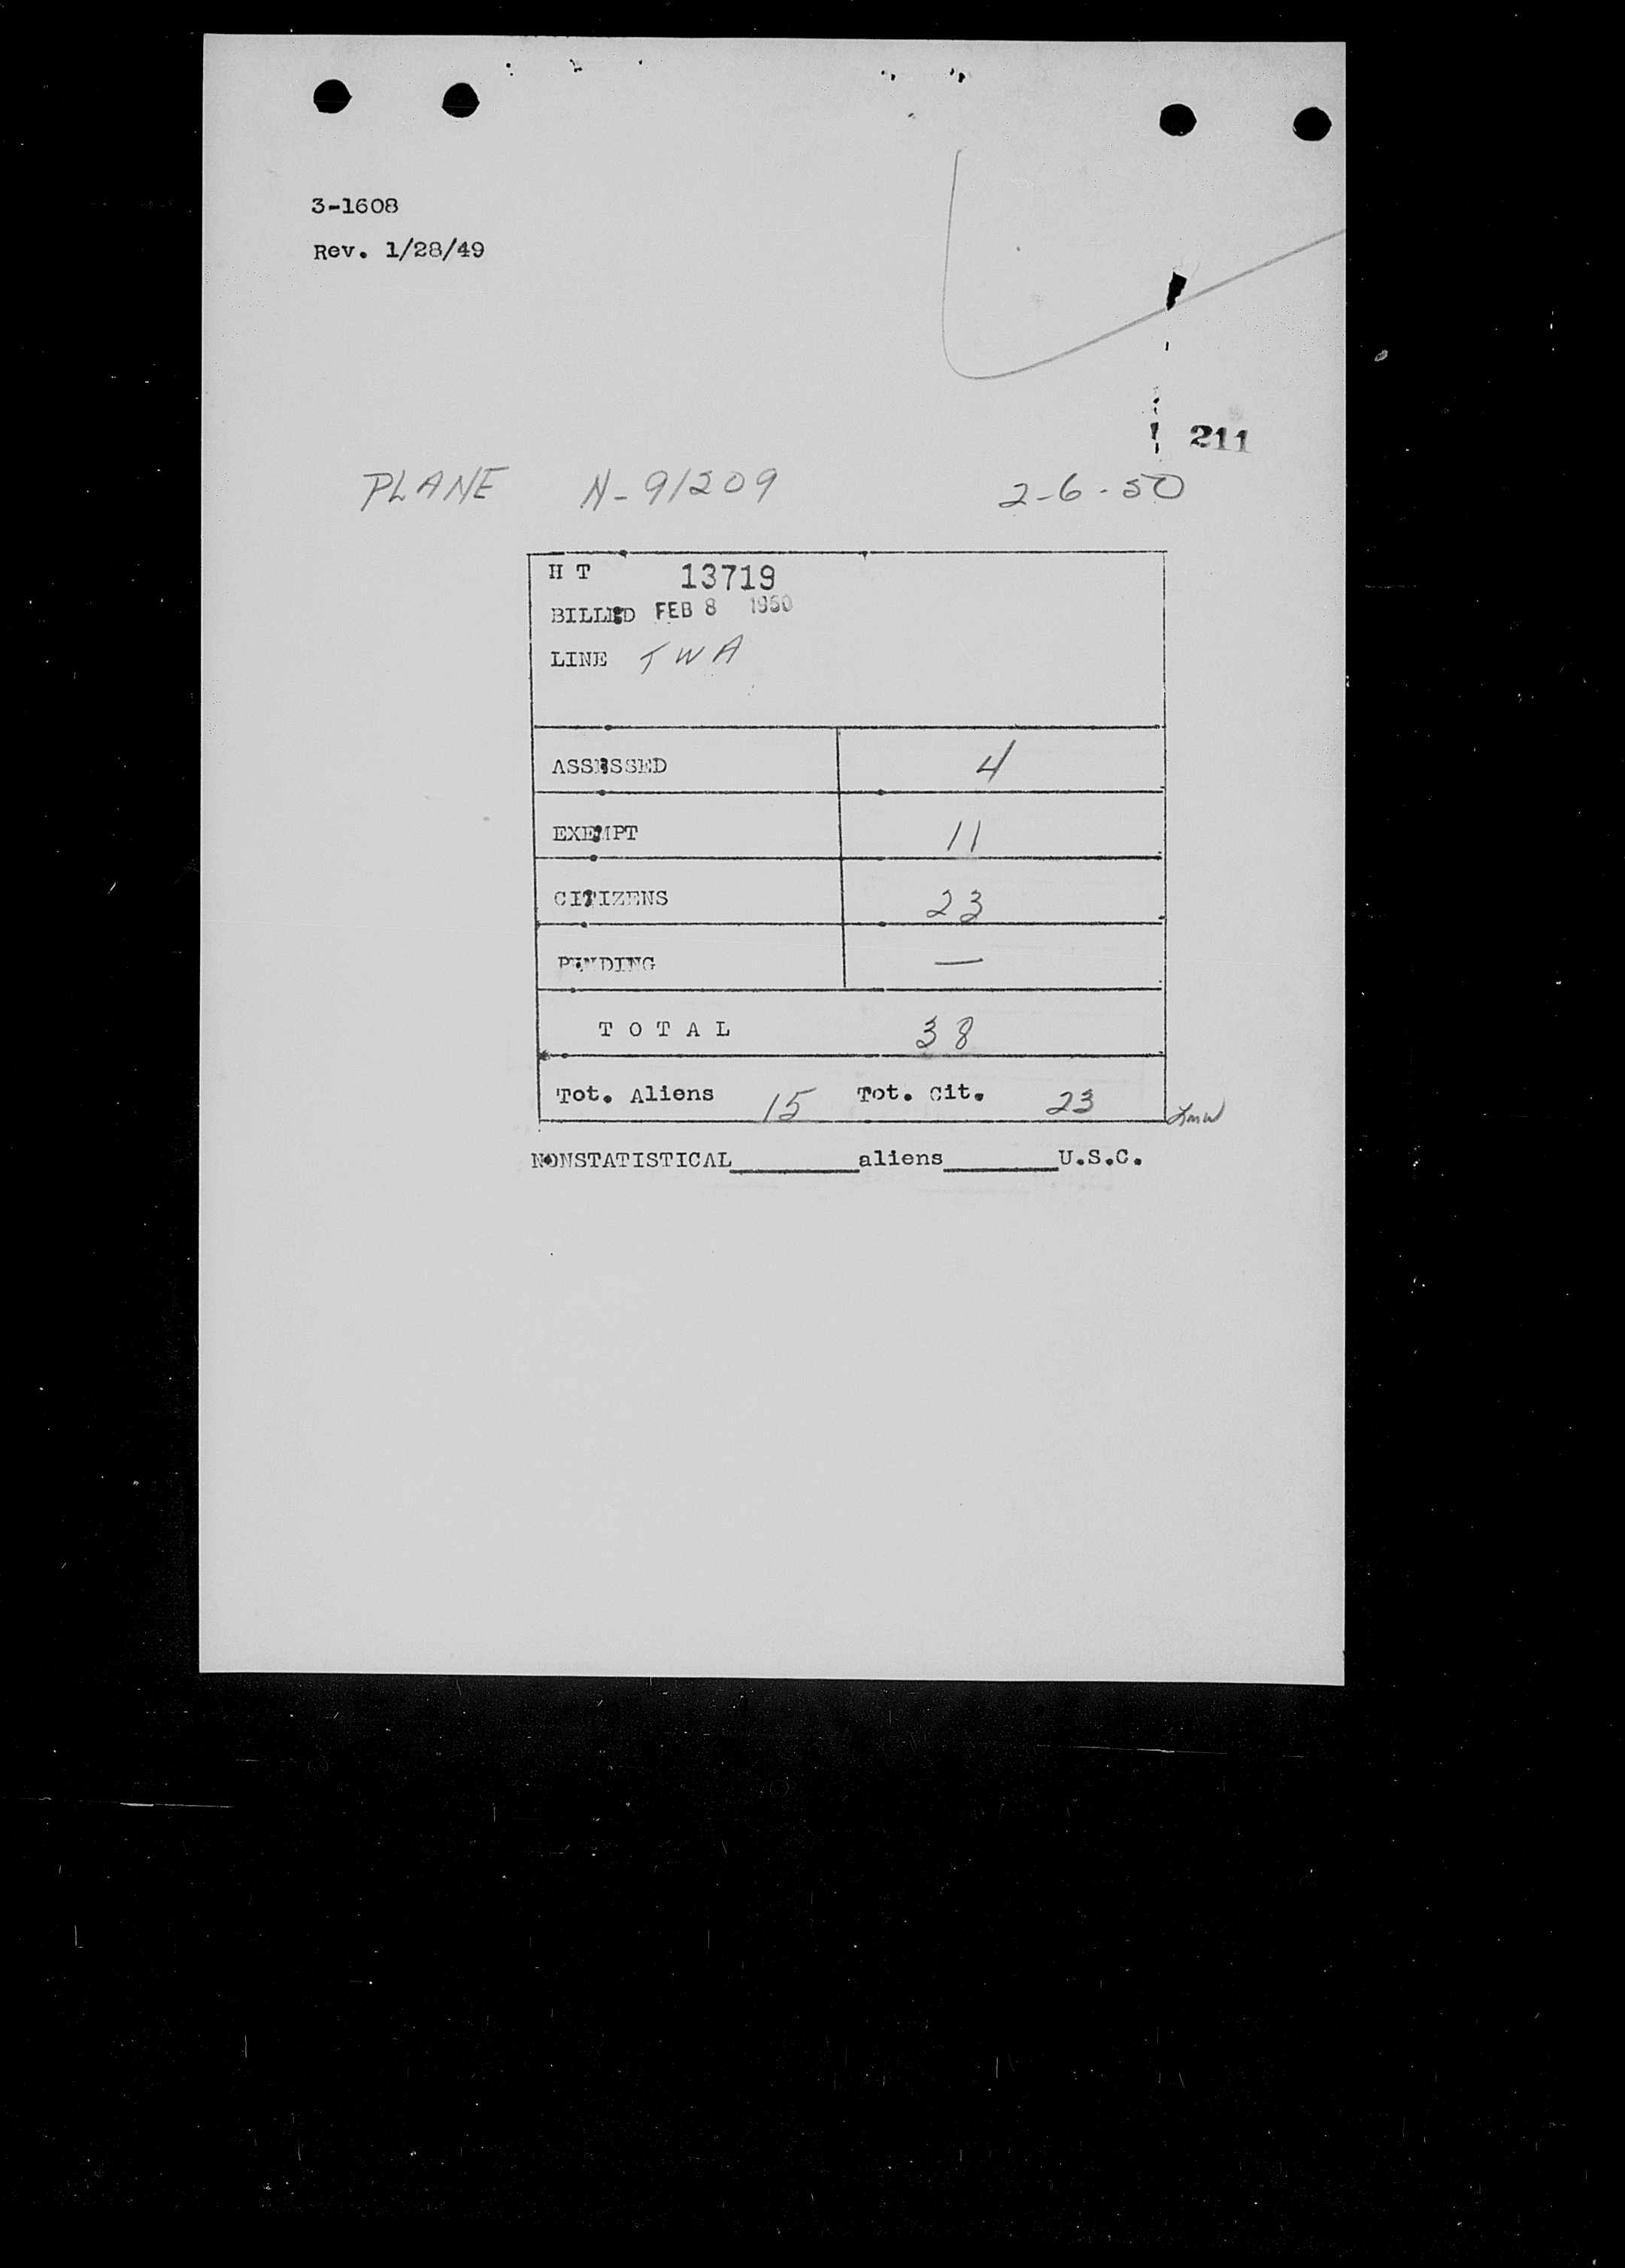 3-1608
Rev. 1/28/49
211
PLANE N-91209 2-6-50
H T 13719
BILLED FEB 8 1950
LINE TWA
ASSESSED 4
EXEMPT 11
CITIZENS 23
PENDING —
T O T A L 38
Tot. Aliens 15 Tot. Cit. 23
NONSTATISTICAL________aliens_______U.S.C.